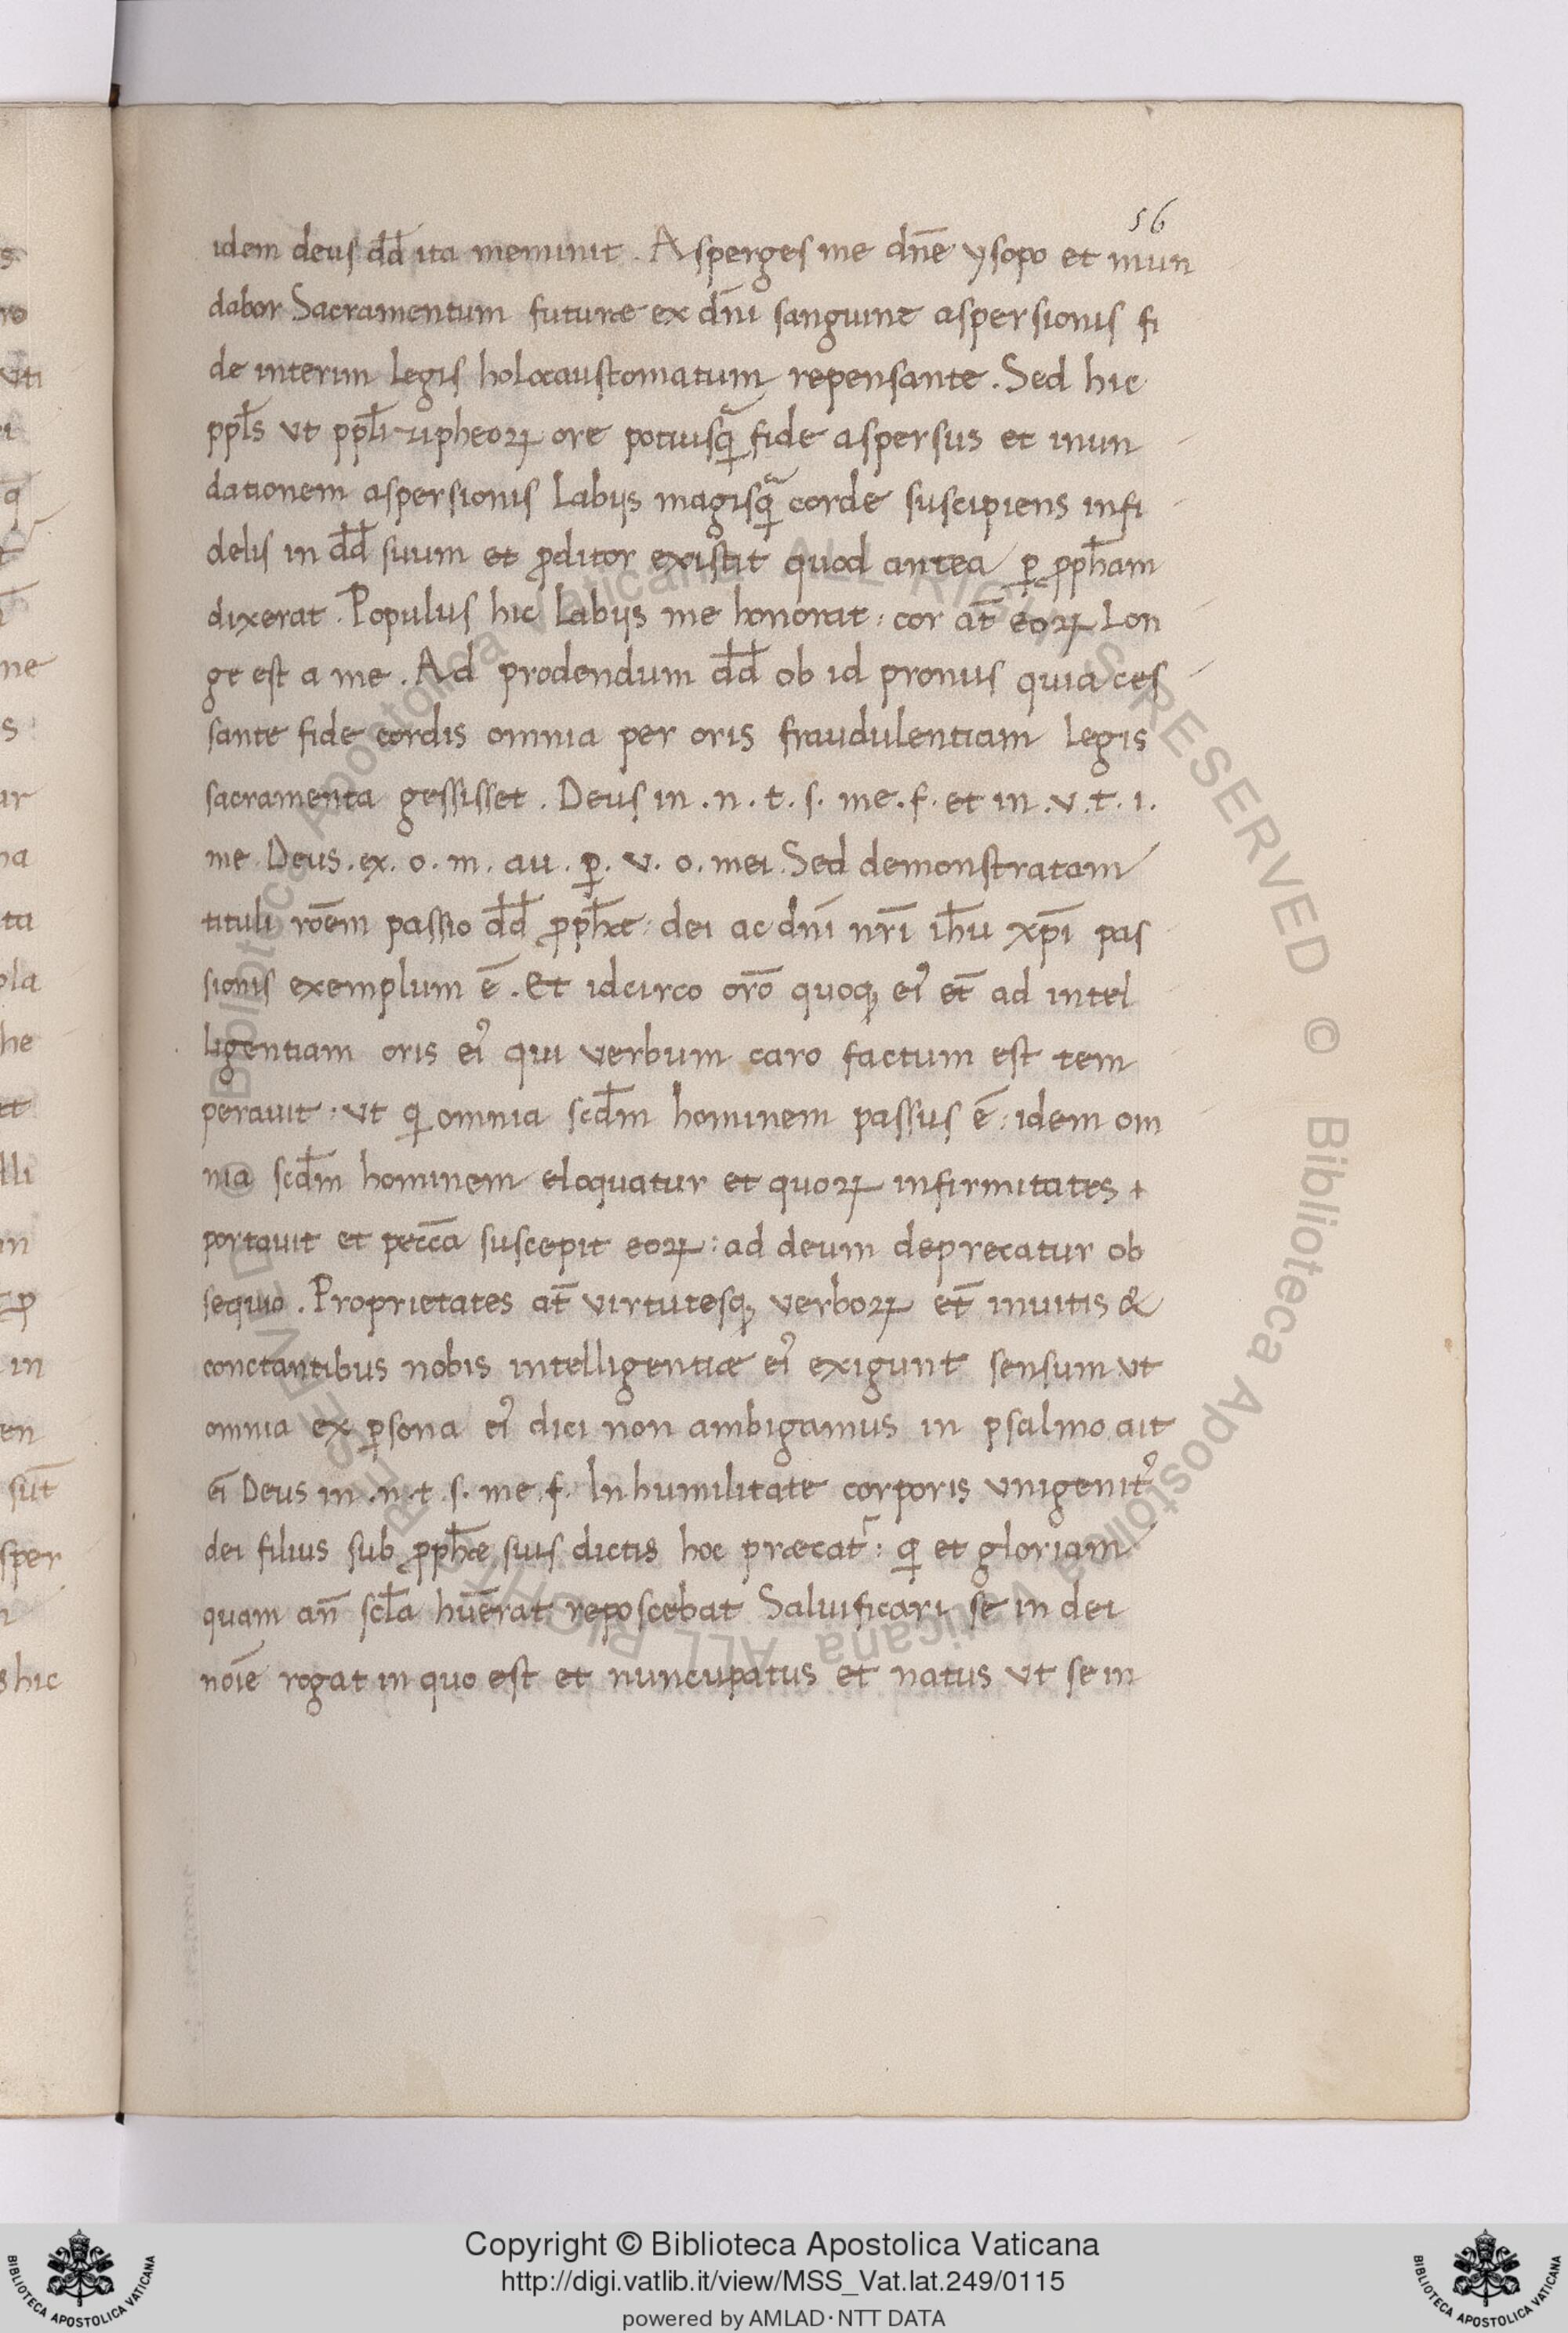 56
idem deus dd̄ ita meminit. Asperges me dn̄e ysopo et mun
dabor Sacramentum futuræ ex dn̄i sanguine aspersionis fi
de interim legis holocaustomatum repensante. Sed hic
ppl̄s ut ppl̄i zipheoꝝ ore potiusꝗ̃ fide aspersus et inun
dationem aspersionis labijs magisꝗ̃ corde suscipiens infi
delis in dd̄ suum et ꝓditor existit quod antea ꝑ ꝓph̄am
dixerat. Populus hic labijs me honorat: cor at̄ eoꝝ lon
ge est a me. Ad prodendum dd̄ ob id pronus quia ces
sante fide cordis omnia per oris fraudulentiam legis
sacramenta gessisset. Deus in .n. t. s. me. f. et in .v. t. i.
me. Deus. ex. o. m. au. ꝑ. v. o. mei. Sed demonstratam
tituli rōem passio dd̄ ꝓph̄æ: dei ac dn̄i nr̄i ih̄u xp̄i pas
sionis exemplum ē. Et idcirco orō quoqꝫ eiꝰ et̄ ad intel
ligentiam oris eiꝰ qui verbum caro factum est tem
perauit: ut ꝗ omnia scd̄m hominem passus ē: idem om
nia scd̄m hominem eloquatur et quoꝝ infirmitates +
portauit et pecc̄a suscepit eoꝝ: ad deum deprecatur ob
sequio. Proprietates at̄ virtutesqꝫ verboꝝ et̄ inuitis &
conctantibus nobis intelligentiæ eiꝰ exigunt sensum ut
omnia ex ꝑsona eiꝰ dici non ambigamus in psalmo ait
ei Deus in .n. t. s. me. f. In humilitate corporis unigenitꝰ
dei filius sub ꝓph̄æ suis dictis hoc præcat᷑: ꝗ et gloriam
quam an̄ scl̄a hūerat reposcebat Saluificari se in dei
noīe rogat in quo est et nuncupatus et natus ut se in
Copyright © Biblioteca Apostolica Vaticana
http://digi.vatlib.it/view/MSS_Vat.lat.249/0115
powered by AMLAD·NTT DATA